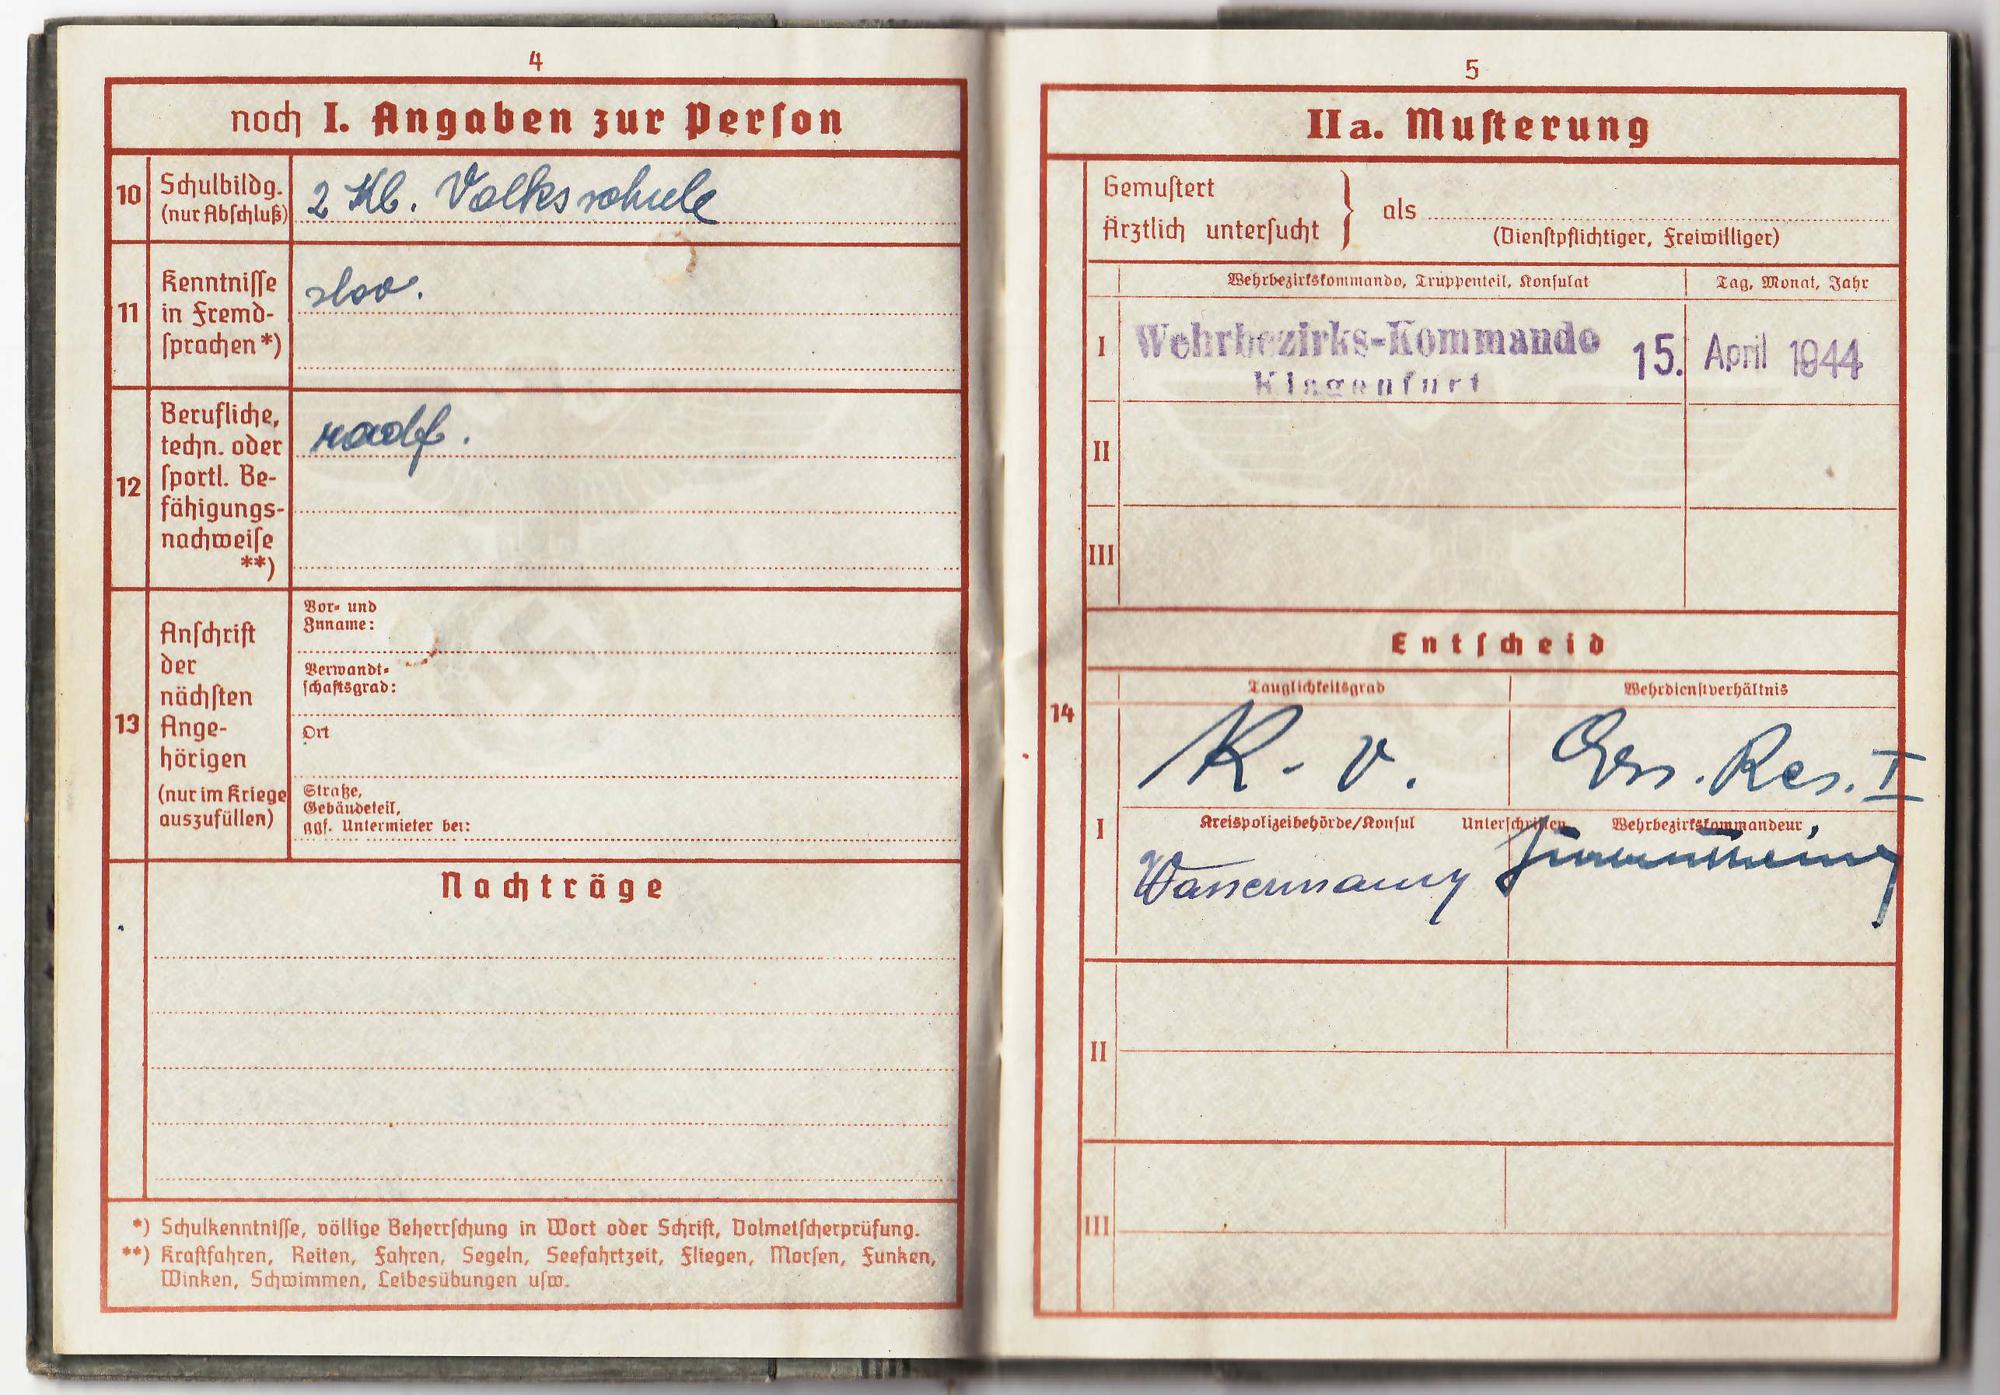 4
noch I. Angaben zur Person
10
Schulbildg.
(nur Abschluß)
2 Kl. Volksschule
11
Kenntnisse
in Fremd-
sprachen*)
slov.
12
Berufliche,
techn. oder
sportl. Be-
fähigungs-
nachweise
**)
radf.
13
Anschrift
der
nächsten
Ange-
hörigen
(nur im Kriege
auszufüllen)
Vor- und
Zuname:
Verwandt-
schaftsgrad:
Ort
Straße,
Gebäudeteil,
ggf. Untermieter bei:
Nachträge
*) Schulkenntnisse, völlige Beherrschung in Wort oder Schrift, Dolmetscherprüfung.
**) Kraftfahren, Reiten, Fahren, Segeln, Seefahrtzeit, Fliegen, Morsen, Funken,
Winken, Schwimmen, Leibesübungen usw.
5
IIa. Musterung
Gemustert
Ärztlich untersucht
} als
(Dienstpflichtiger, Freiwilliger)
Wehrbezirkskommando, Truppenteil, Konsulat
Tag, Monat, Jahr
I
Wehrbezirks-Kommando
Klagenfurt
15. April 1944
II
III
Entscheid
14
Tauglichkeitsgrad
Wehrdienstverhältnis
K. v.
Ers. Res. I
I
Kreispolizeibehörde/Konsul
Unterschriften
Wehrbezirkskommandeur
Wassermann
II
III